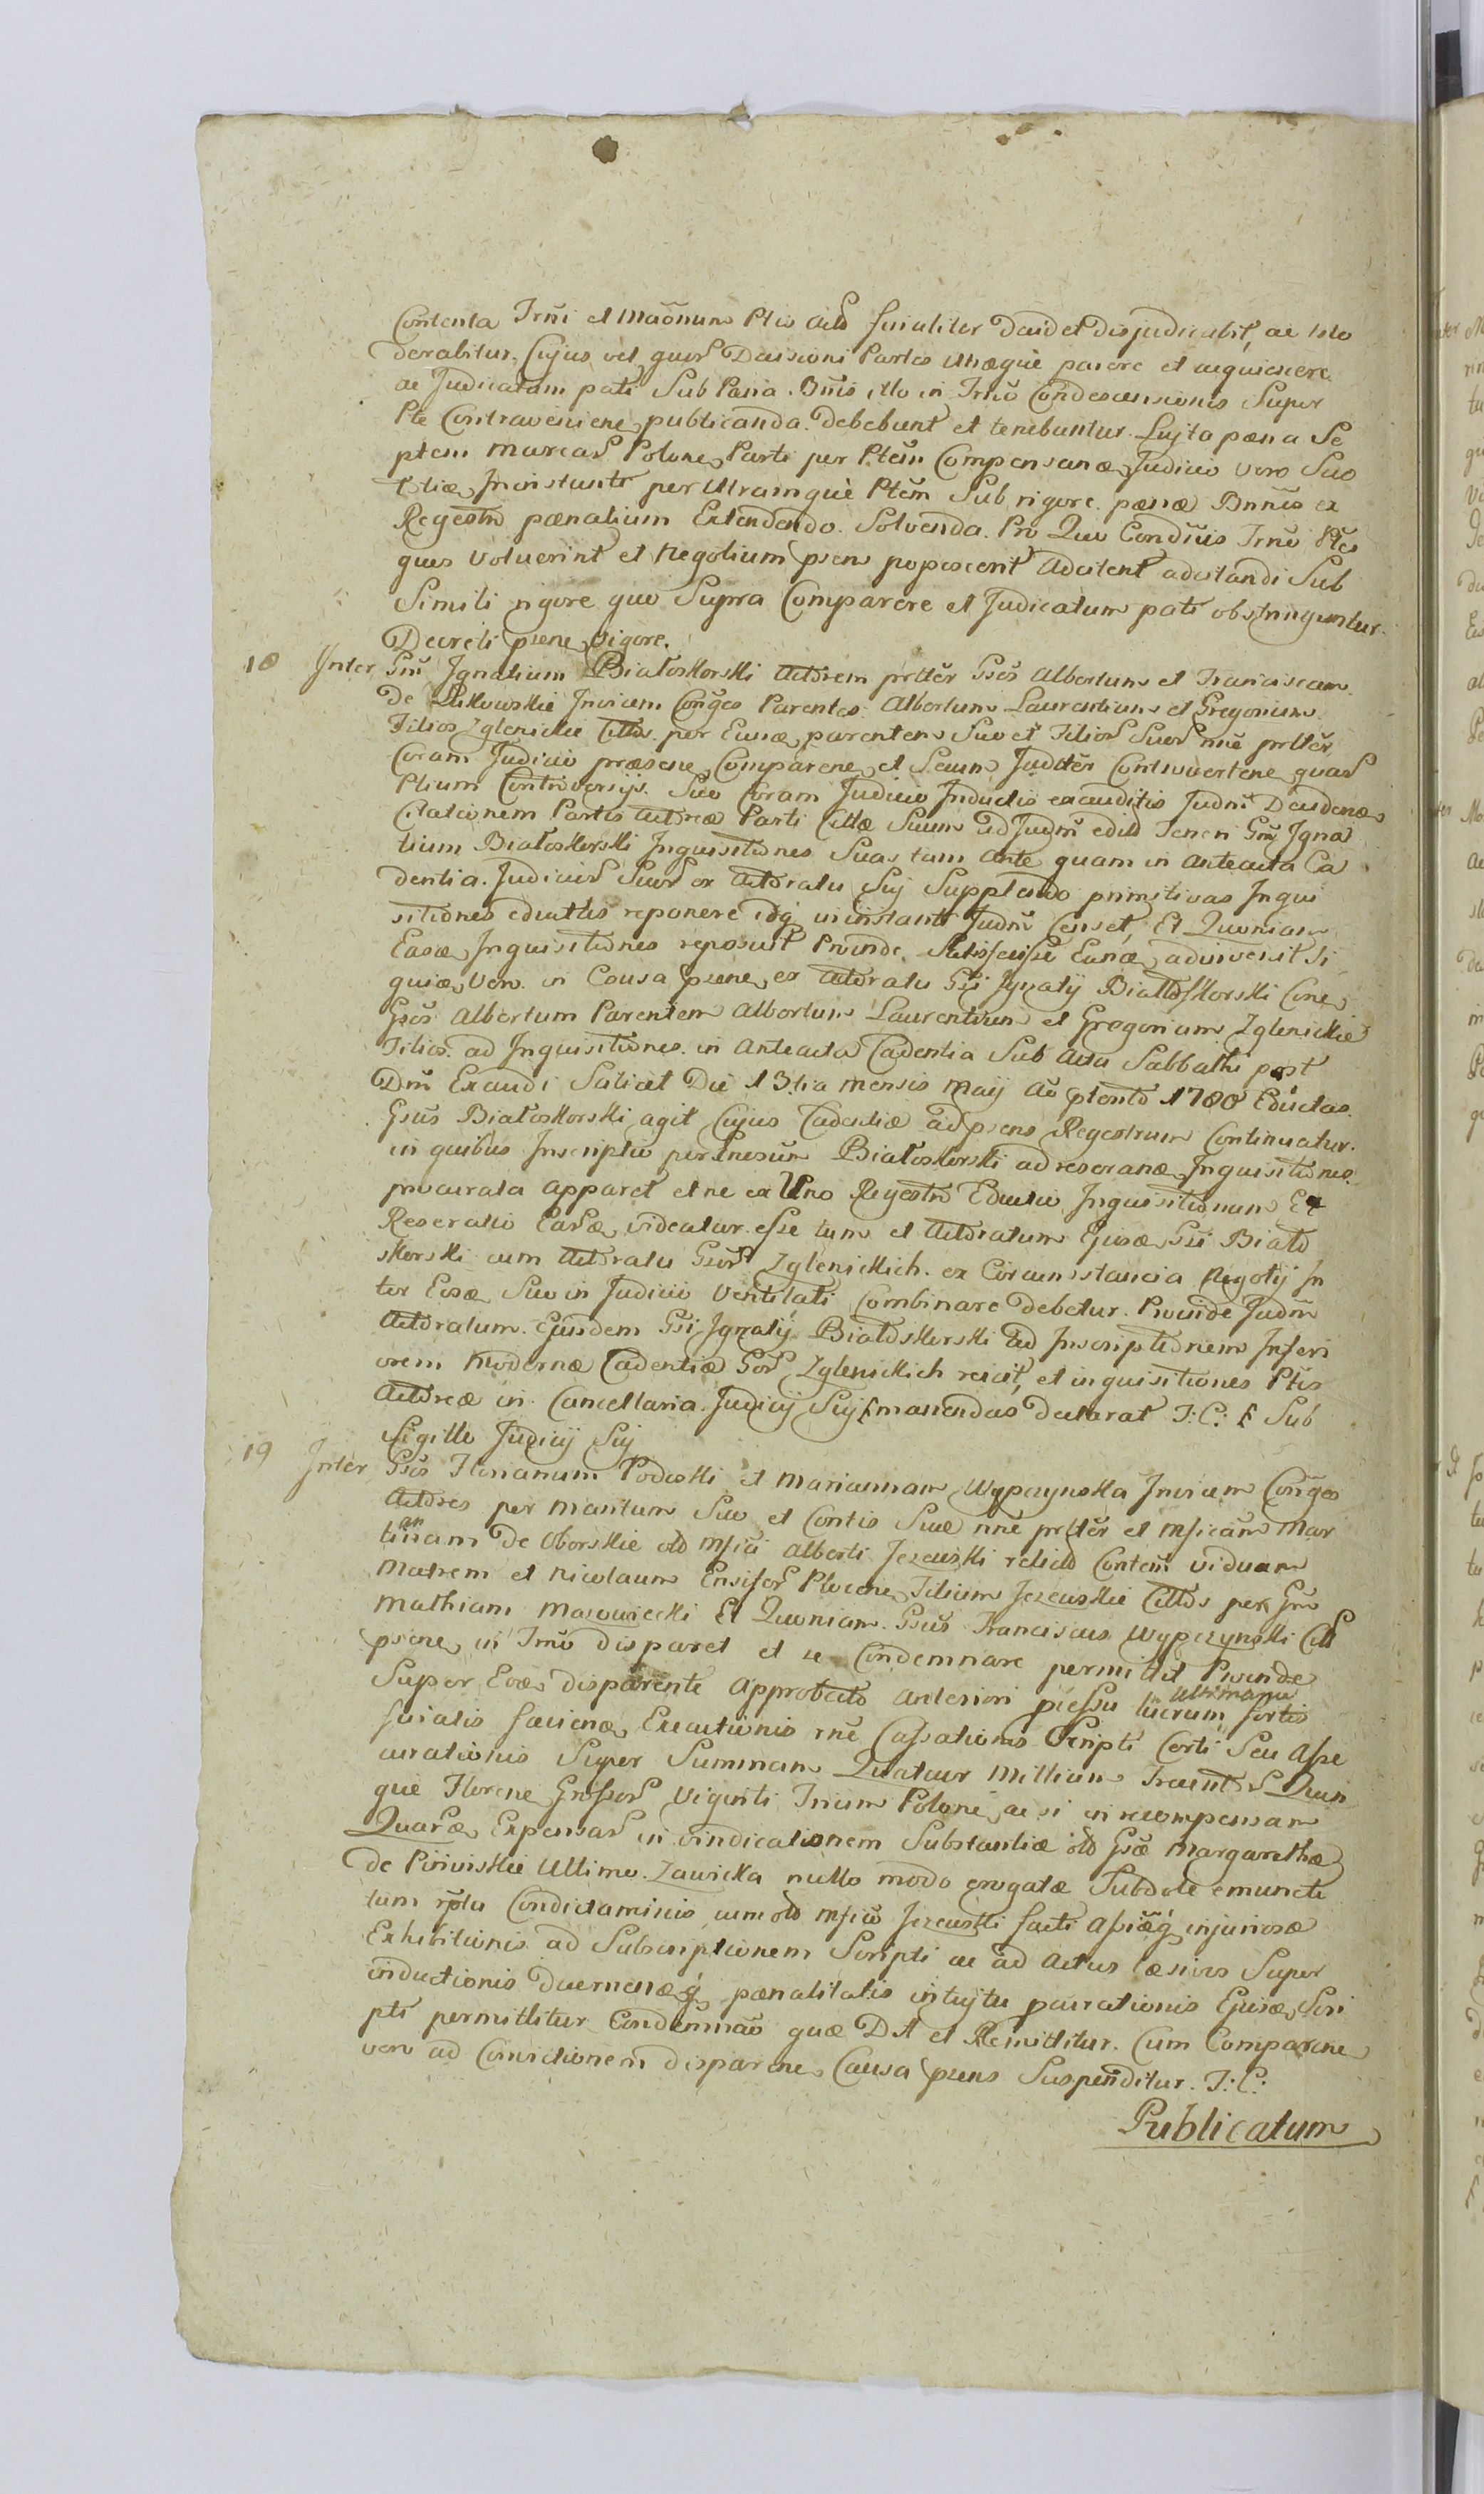 Contenta Trni et Maonum Ptis acto finaliter Decidet disjudicabit, ac tdo
derabitur. Cujus vel quors Decisioni Partes utræquè parere et acquiescere
ac Judicatum pati Sub Pæna. Bnis illo in Trno Condescensionis Super
Pte Contraveniene publicanda. debebunt et tenebuntur. Lujta pæna Se
ptem Marcar Polone Parti per Ptem Compensanæ, Judicio vero Suo
in instanti per Utramquè Ptem Sub rigore pænæ Bnnis ex
Regestro pænalium Extendendo. Solvenda. Pro Quo Condiis Trno Ptes
ques Voluerint et Negotium psens poposcerit Adcitent adcitandi Sub
Simili rigore quo Supra Comparere et Judicatum pati obstringuntur.
Decreti psene Vigore.
18 Inter Gsm Ignatium Białoskorski Actorem prtter Gsos Albertum et Franciscam
De Rikowskie Invicem Conges Parentes. Albertum Laurentium et Gregorium
Filios Zglenickie Cittos. per Eunæ parentem Suo et Filior Suor nne prtter
Coram Judicio præsene, Comparene et Secum Juditer Controvertene quar
Ptium Controversijs. Suo Coram Judicio Inductis exauditis Judm Decidenæ
Citationem Partis Actoreæ Parti Cittæ Suum ad Judm edito Teneri Gsm Igna
tium Białoskorski Inquisitiones Suas tam Ante quam in anteacta Ca
dentia. Judicior Suor ex Actoratu Sij Supplendo primitivas Inqui
sitiones eductas reponere idq in instanti Judm Censet, Et Quoniam
Easæ Inquisitiones reposuit Proinde. Satisfecisse Eunæ adinvenit Si
quiæ, Vero. in Causa psene ex Actoratu Gsi Ignatij Białoskorski Cone
Gsos Albertum Parentem Albertum Laurentium et Gregorium Zglenickie
Filios. ad Inquisitiones. in Anteacta Cadentia Sub Acta Sabbathi post
Dm Exaudi Scilicet Die 13tia Mensis Maij Ao ptento 1780 Eductas.
Gsus Białoskorski agit Cujus Cadentiæ ad psens Regestrum Continuatur.
in quibus Inscriptio per Gnesum Białoskorski ad reseranæ Inquisitiones
procurata apparet et ne ex Uno Regestro Eductio Inquisitionum Et
Reseratio Earæ, videatur. esse tum et Actoratum Ejusæ Gsi Biało
skorski cum Actoratu Gsor Zglenickich. ex Circumstancia Negotij In
ter Eosæ Suo in Judicio Ventilati Combinare debetur. Proinde Judm
Actoratum. Ejusdem Gsi Ignatij Białoskorski ad Inscriptionem Inferi
orem Modernæ Cadentiæ Gsor Zglenickich reicit, et inquisitiones Ptis
Actoreæ in Cancellaria. Judicij Sij manendas declarat J: C: Sub
Sigillo Judicij Sij
19 Inter Gsos Florianum Podoski et Mariannam Wypczynska Invicem Conges
Actores per Maritum Suo et Contis Suæ nne prtter et Msicam Mar
tinnam De Oborskie olo Msici Alberti Jezewski relicto Contem Viduam
an
Matrem et Nicolaum Ensifer Plocene Filium Jezewskie Cittos per Gsm
Mathiam Mazowiecki Et Quoniam. Gsus Franciscus Wypczynski Citt
psene in Trno disparet et se Condemnare permittit Proinde
Super Eoæ disparente Approbato anteriori pressu lucrum Ultimarie fortis
fuialis facienæ Executionis rne Cassationis Scripti Certi Seu Asse
curationis Super Summam Quatuor Millium Tracentor Quin
que Florene Grossor Viginti Trium Polone, ac si in recompensam
Quaræ Expensar in vindicationem Substantiæ olo Gsæ Margarethæ
de Piiviskie Ultimo. Zawicka nullo modo erogatæ Subdole emuncte
tum rptu Condictaminis cum olo Msico Jezewski facti asicæq injuriosæ
Exhibitionis ad Subscriptionem Scripti ac ad Actus læsivos Super
inductionis duernenæq pænalitatis intuitu procurationis Ejusæ Scri
pti permittitur Condemnao quæ D A et Remittitur. Cum Comparene
vero ad Convictionem disparene Causa psens Suspenditur. J: C:
Publicatum